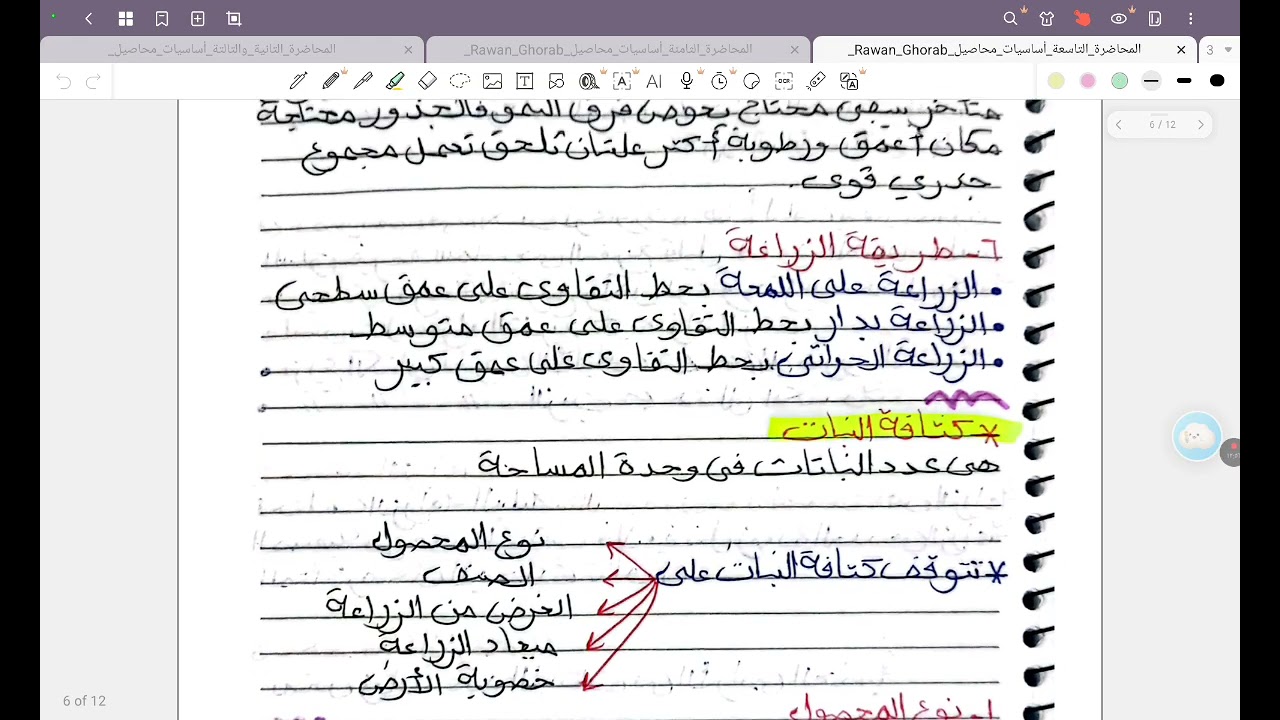 المحاضرة الثانية والثالثة_أساسيات_محاصيل_
المحاضرة_الثامنة_أساسيات_محاصيل_Rawan_Ghorab_
المحاضرة_التاسعة_أساسيات_محاصيل_Rawan_Ghorab_
3
AI
OCR
6 / 12
متأخر سقى محتاج يعوض فرق النمو فالجذور محتاجة
مكان أعمق ورطوبة أكتر علشان تلحق تعمل مجموع
جذري قوى.
٦- طريقة الزراعة
• الزراعة على اللمعة بحط التقاوى على عمق سطحى
• الزراعة بدار بحط التقاوى على عمق متوسط
• الزراعة الحراتى بحط التقاوى على عمق كبير
* كثافة النبات
هى عدد النباتات فى وحدة المساحة
* تتوقف كثافة النبات على
نوع المحصول
الصنف
الغرض من الزراعة
ميعاد الزراعة
خصوبة الأرض
6 of 12
١- نوع المحصول